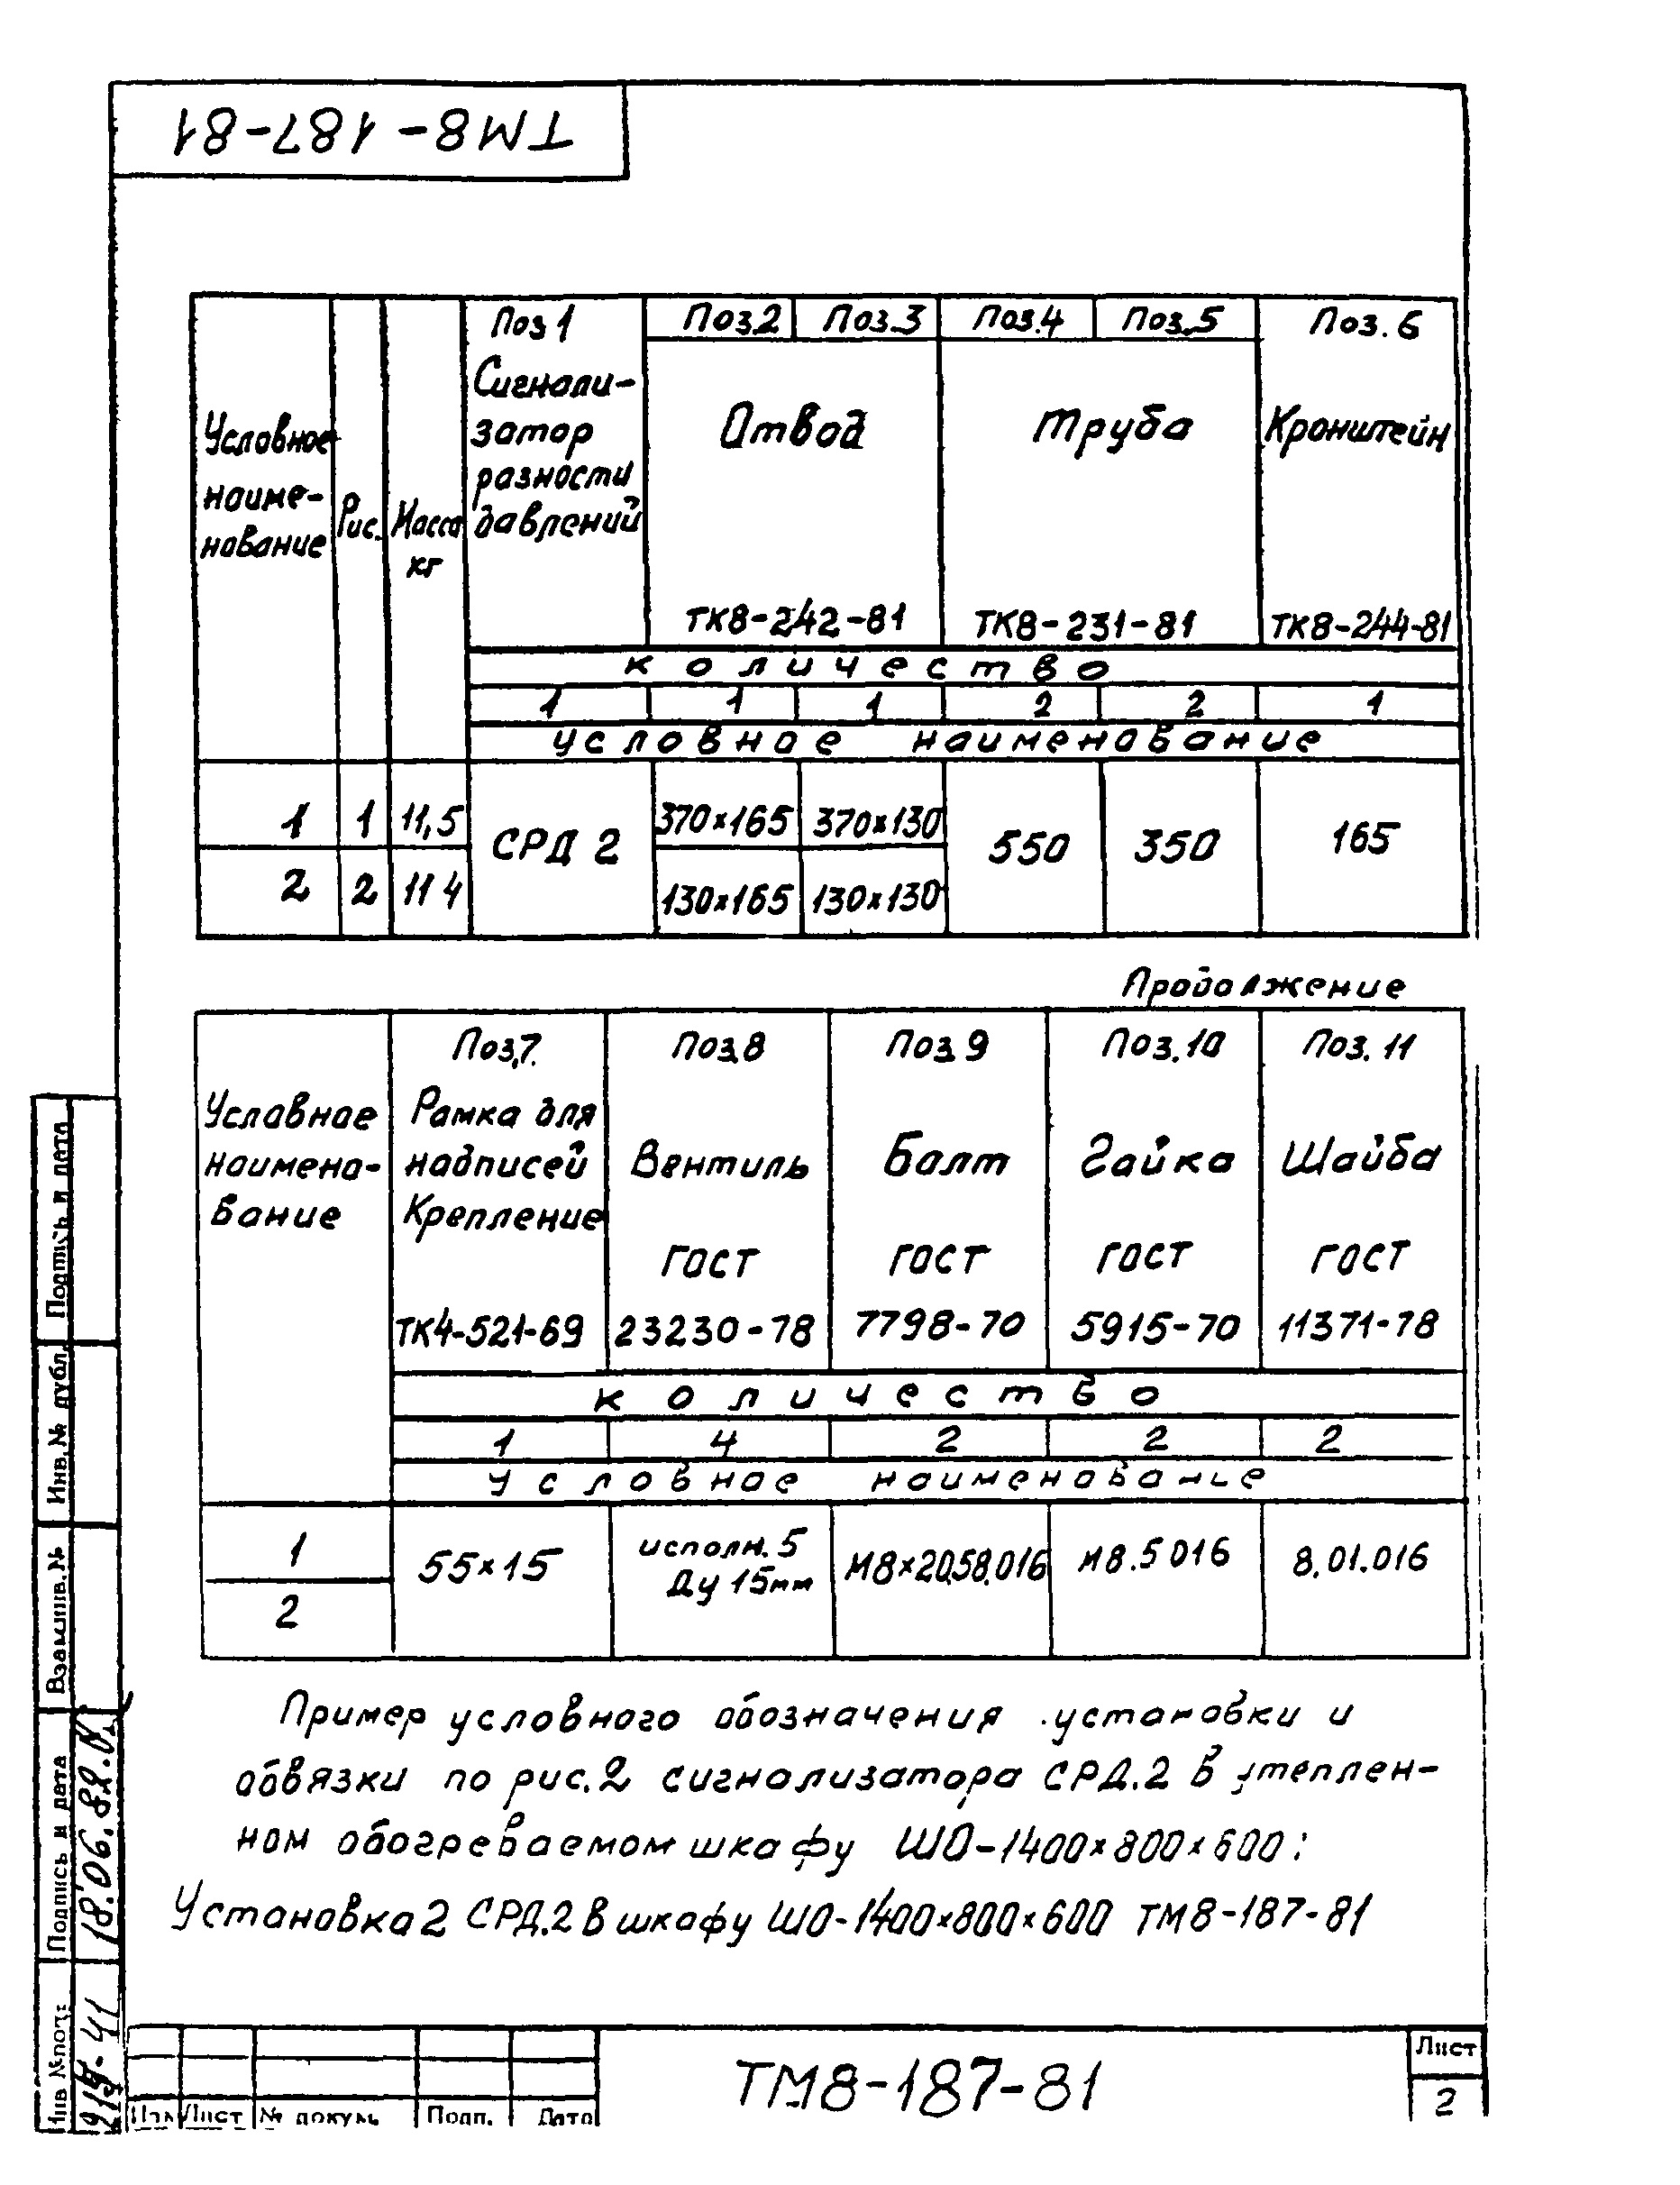 ТМ8-187-81
Условное
наиме-
нование
Рис.
Масса
кг
Поз 1
Сигнали-
затор
разности
давлений
Поз.2
Поз.3
Отвод
ТК8-242-81
Поз.4
Поз.5
Труба
ТК8-231-81
Поз. 6
Кронштейн
ТК8-244-81
количество
1 1 1 2 2 1
условное наименование
1 1 11,5 СРД 2 370×165 370×130 550 350 165
2 2 11 4 130×165 130×130
Продолжение
Условное
наимено-
вание
Поз.7.
Рамка для
надписей
Крепление
ТК4-521-69
Поз.8
Вентиль
ГОСТ
23230-78
Поз.9
Болт
ГОСТ
7798-70
Поз.10
Гайка
ГОСТ
5915-70
Поз. 11
Шайба
ГОСТ
11371-78
количество
1 4 2 2 2
Условное наименование
1
2
55×15
исполн. 5
Ду 15мм
М8×20.58.016
М8.5 016
8.01.016
Пример условного обозначения установки и
обвязки по рис.2 сигнализатора СРД.2 в утеплен-
ном обогреваемом шкафу ШО-1400×800×600:
Установка 2 СРД.2 в шкафу ШО-1400×800×600 ТМ8-187-81
Подпись и дата
Инв. № дубл.
Взам инв. №
Подпись и дата
18.06.82.
Инв № подл.
Изм Лист № докум. Подп. Дата
ТМ8-187-81
Лист
2